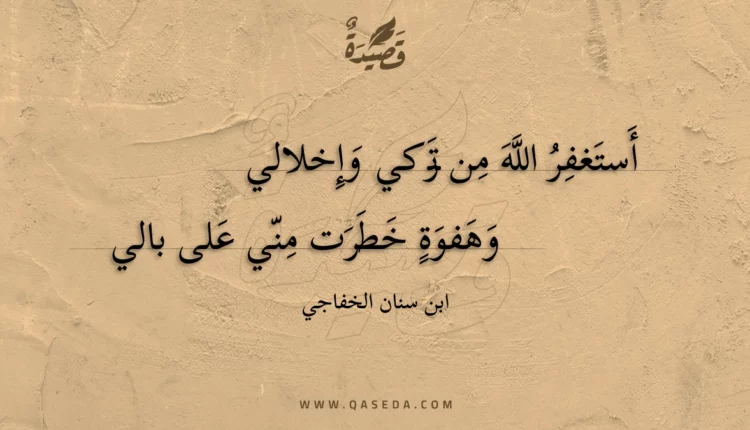 قَصِيدَةٌ
أَستَغفِرُ اللَّهَ مِن تَركي وَإِخلالي
وَهَفوَةٍ خَطَرَت مِنّي عَلى بالي
ابن سنان الخفاجي
WWW.QASEDA.COM